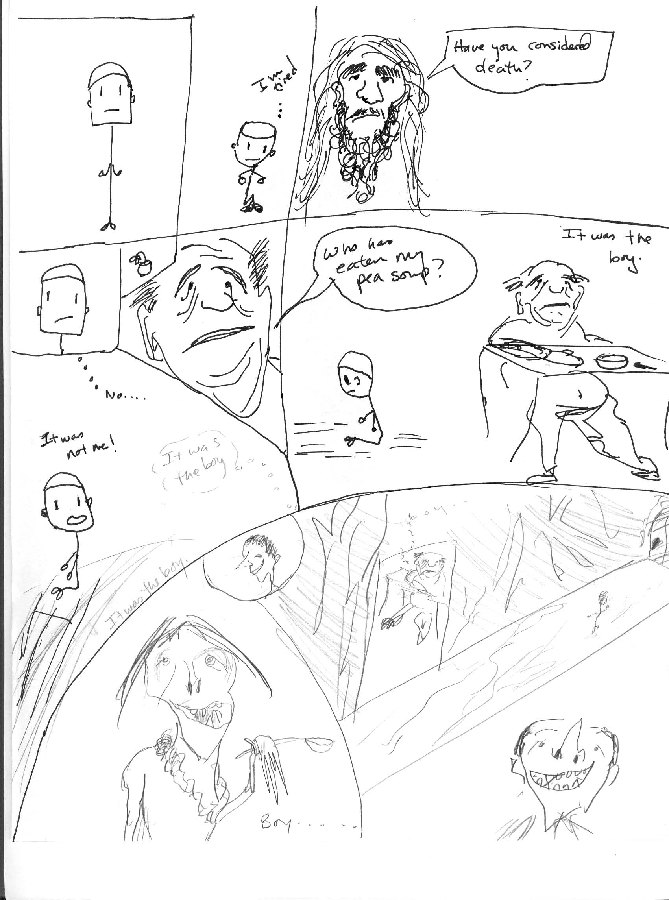 I'm
tired
...
Have you considered
death?
Who has
eaten my
pea soup?
It was the
boy.
No....
It was
not me!
It was
the boy
It was the boy
boy...
Boy......